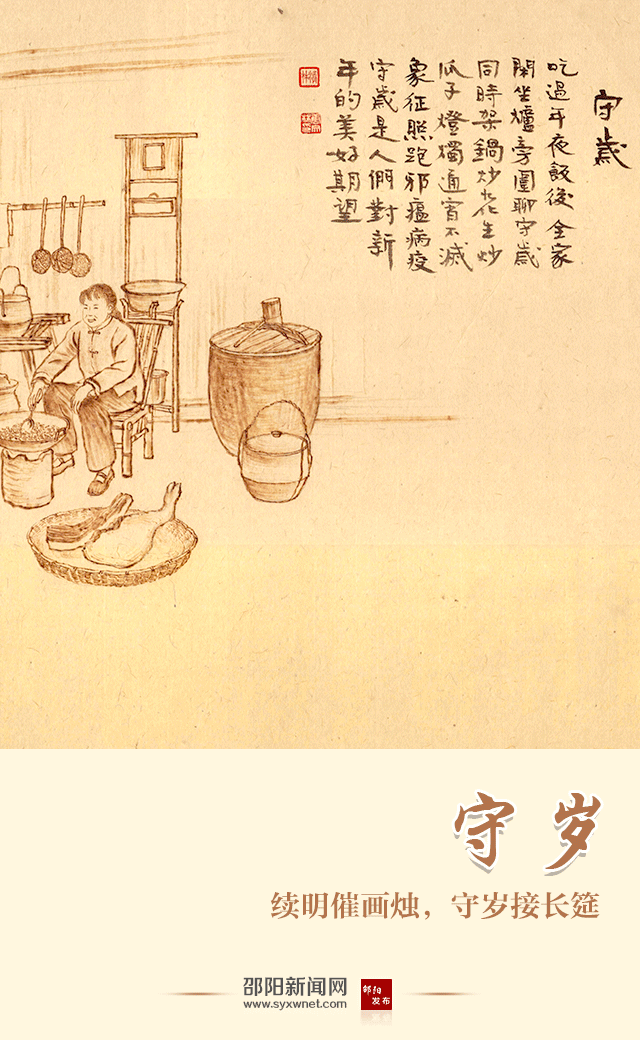 守歲
吃過年夜飯後全家
閑坐爐旁圍聊守歲
同時架鍋炒花生炒
瓜子燈燭通宵不滅
象征照跑邪瘟病疫
守歲是人們對新
年的美好期望
守岁
续明催画烛，守岁接长筵
邵阳新闻网
www.syxwnet.com
邵阳
发布